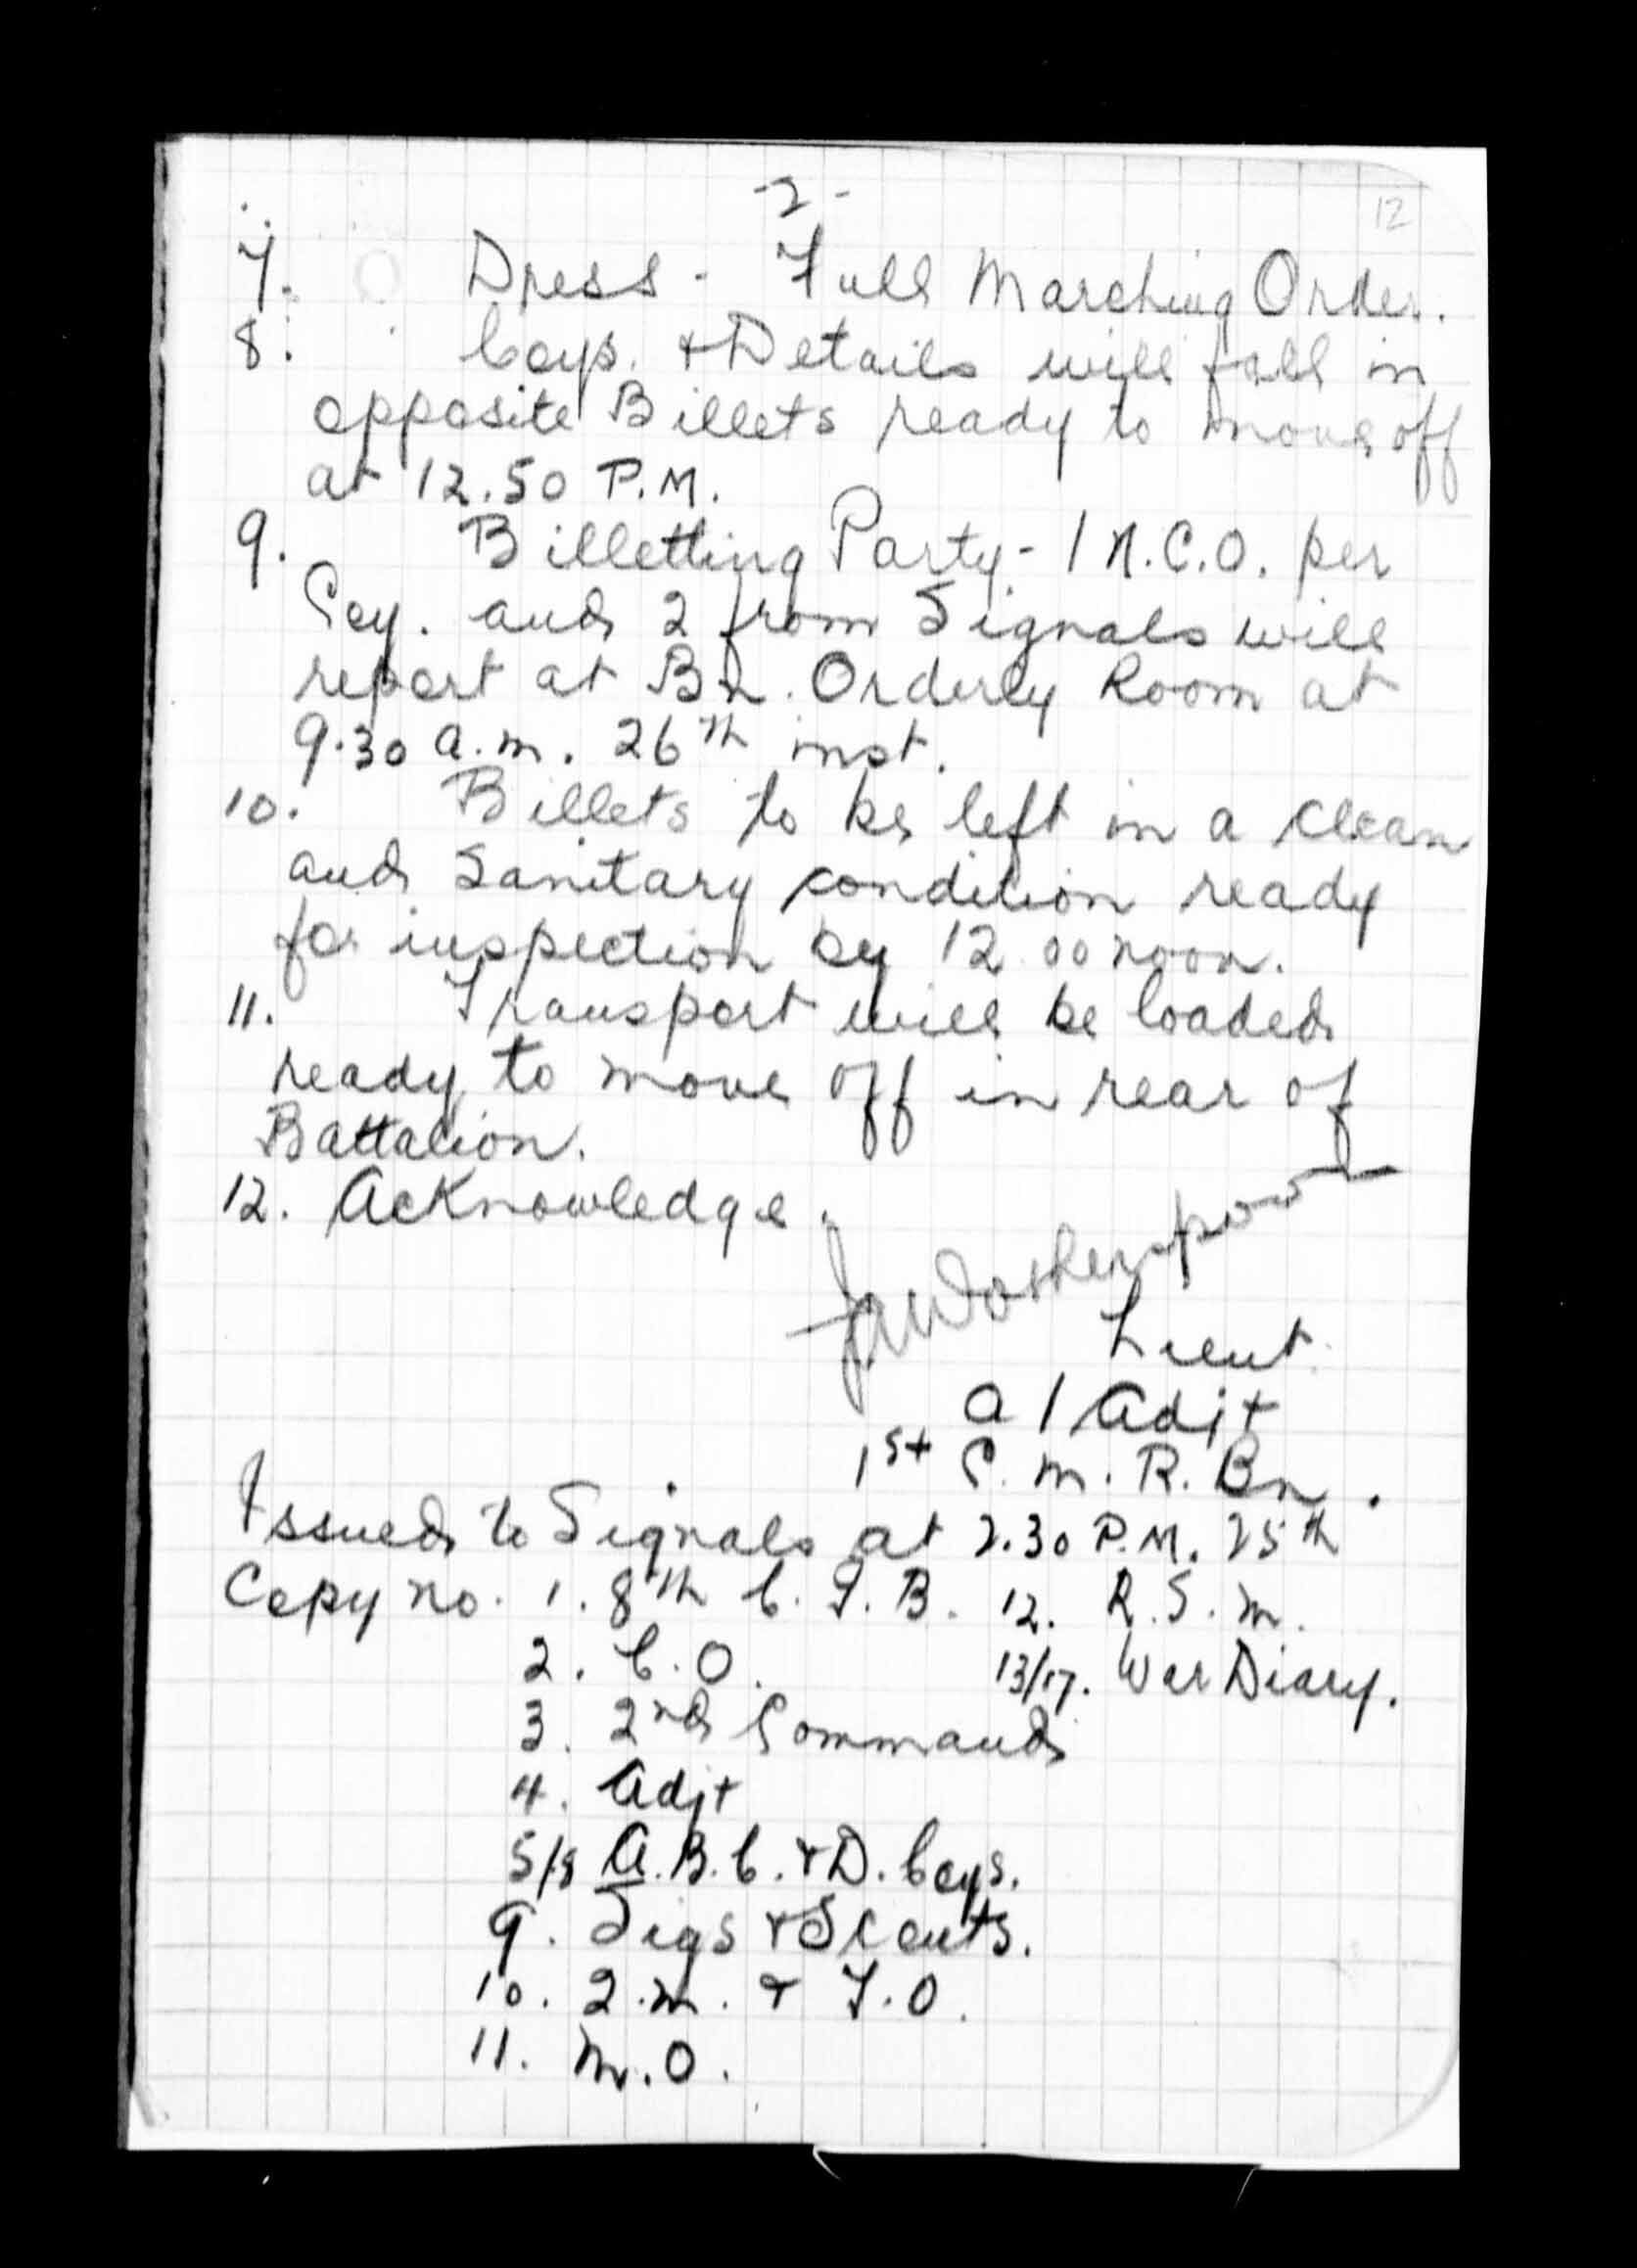 -2-
12
7. Dress - Full Marching Order.
8. Coys. & Details will fall in
opposite Billets ready to move off
at 12.50 P.M.
9. Billetting Party - 1 N.C.O. per
Coy. and 2 from Signals will
report at Bn. Orderly Room at
9.30 a.m. 26th inst.
10. Billets to be left in a clean
and Sanitary condition ready
for inspection by 12.00 noon.
11. Transport will be loaded
ready to move off in rear of
Battalion.
12. Acknowledge.
Lieut.
a/Adjt
1st C.M.R. Bn.
Issued to Signals at 2.30 P.M. 25th
Copy no. 1. 8th C.I.B. 12. R.S.M.
2. C.O. 13/17. War Diary.
3. 2nd Command
4. Adjt
5/8 A.B.C. & D. Coys.
9. Sigs & Scouts.
10. Q.M. & T.O.
11. M.O.